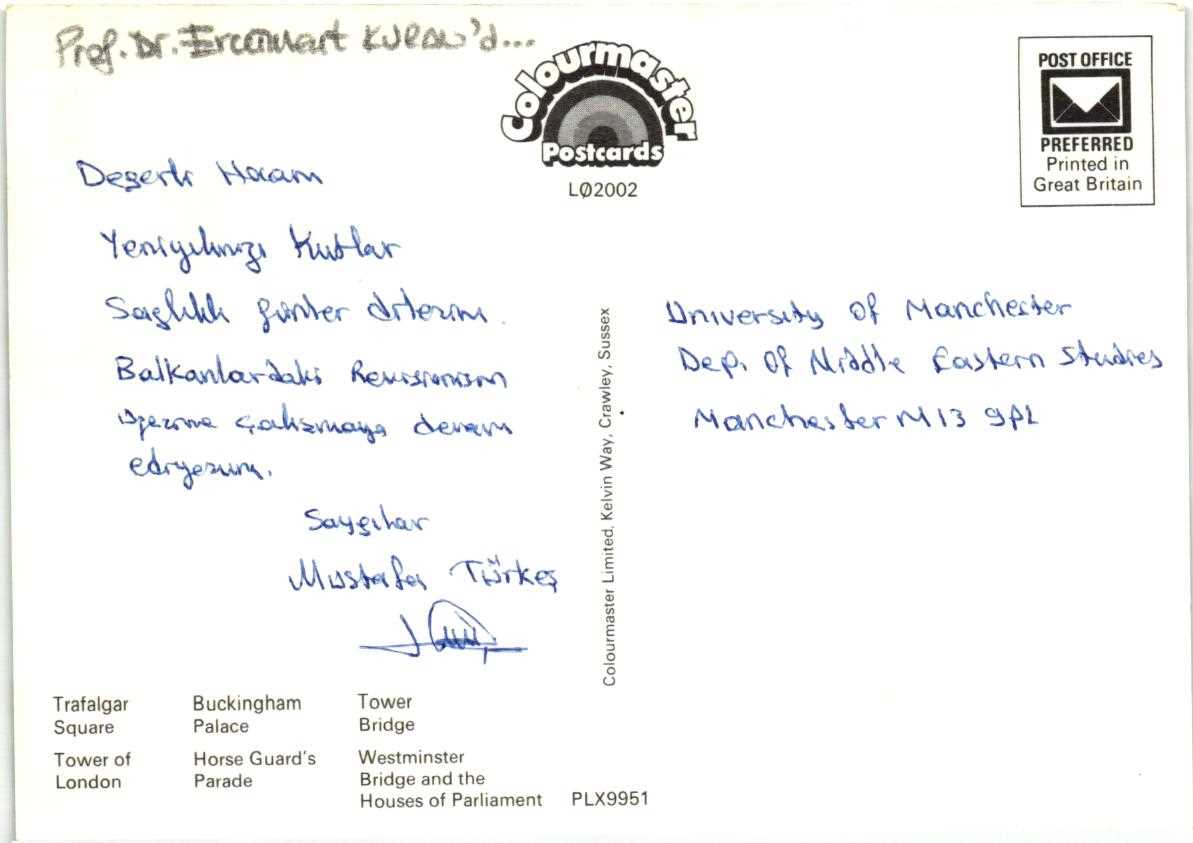 Prof. Dr. Ercüment KURAN'd...
Colourmaster
Postcards
LØ2002
POST OFFICE
PREFERRED
Printed in
Great Britain
Değerli Hocam
Yeniyılınızı Kutlar
Sağlıklı günler dilerim.
Balkanlardaki Revisionism
üzerine çalışmaya devam
ediyorum.
Saygılar
Mustafa Türkeş
University of Manchester
Dep. Of Middle Eastern Studies
Manchester M13 9PL
Colourmaster Limited, Kelvin Way, Crawley, Sussex
Trafalgar Square
Buckingham Palace
Tower Bridge
Tower of London
Horse Guard's Parade
Westminster Bridge and the Houses of Parliament
PLX9951